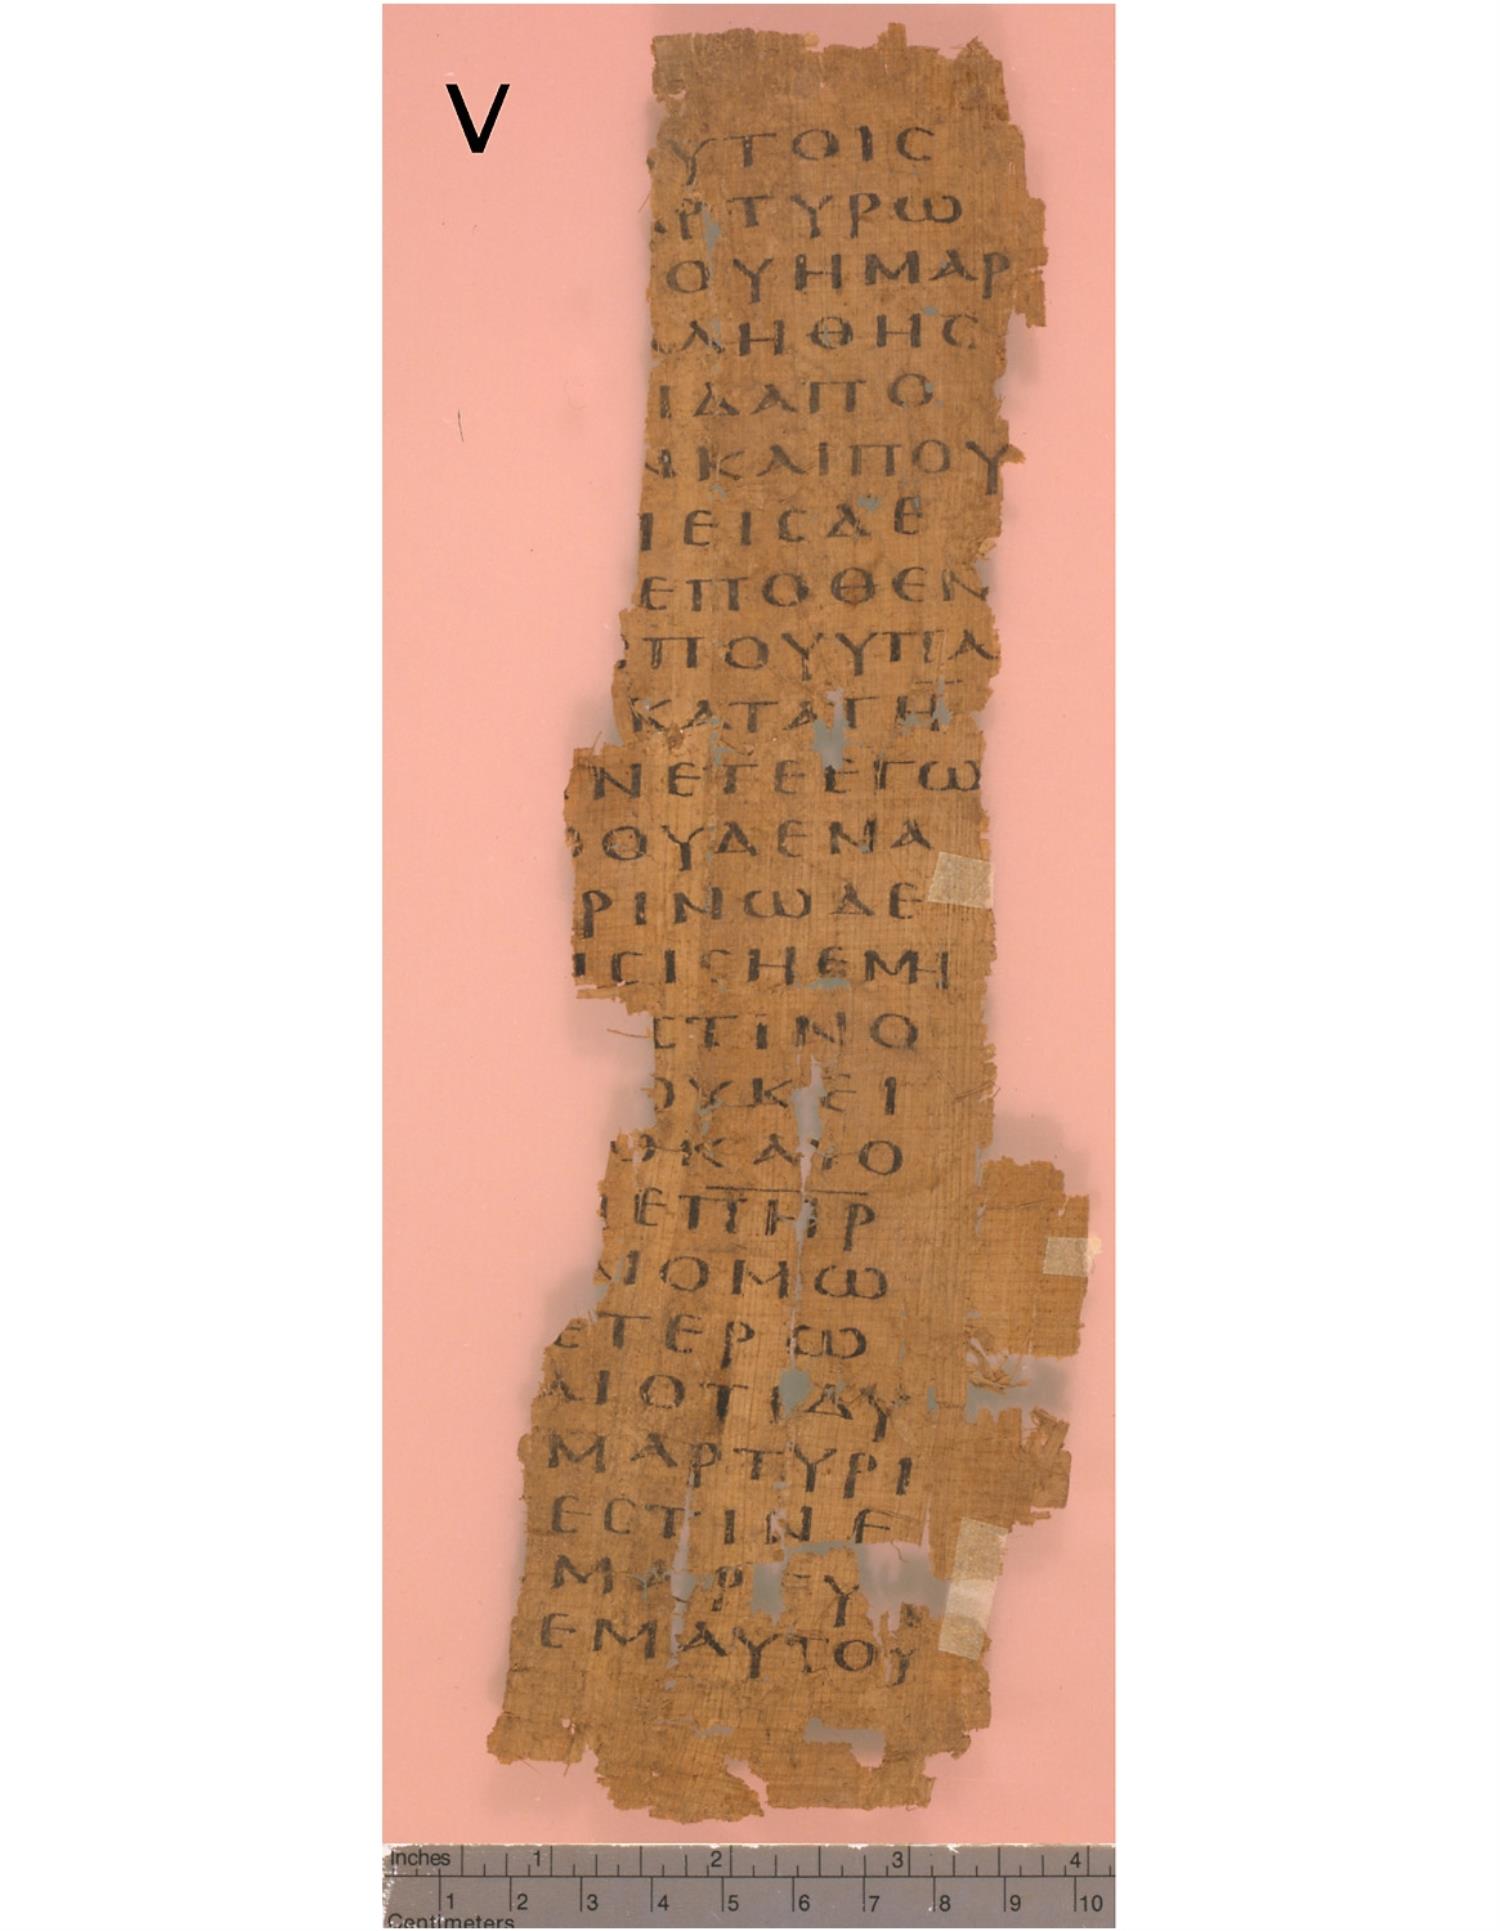 V
ΥΤΟΙC
ΡΤΥΡω
ΟΥΗΜΑΡ
ΑΛΗΘΗC
ΙΔΑΠΟ
ΝΚΑΙΠΟΥ
ΙΕΙCΔΕ
ΕΠΟΘΕΝ
ΠΟΥΥΠΑ
ΚΑΤΑΤΗ
ΝΕΤΕΕΓω
ΟΥΔΕΝΑ
ΡΙΝωΔΕ
ΙCΙCΗΕΜΗ
CΤΙΝΟ
ΟΥΚΕΙ
ΚΑΙΟ
ΕΠΗΡ
ΝΟΜω
ΕΤΕΡω
ΑΙΟΤΙΔΥ
ΜΑΡΤΥΡΙ
ΕCΤΙΝΕ
ΜΑΡΤΥ
ΕΜΑΥΤΟΥ
Inches 1 2 3 4
1 2 3 4 5 6 7 8 9 10
Centimeters